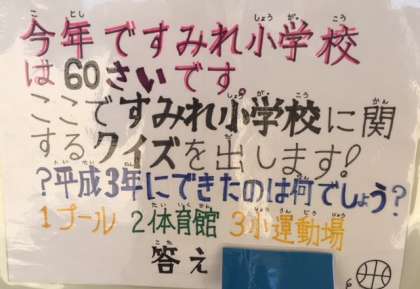 今年ですみれ小学校
は60さいです
ここですみれ小学校に関
するクイズを出します!
?平成3年にできたのは何でしょう?
1プール 2体育館 3小運動場
答え